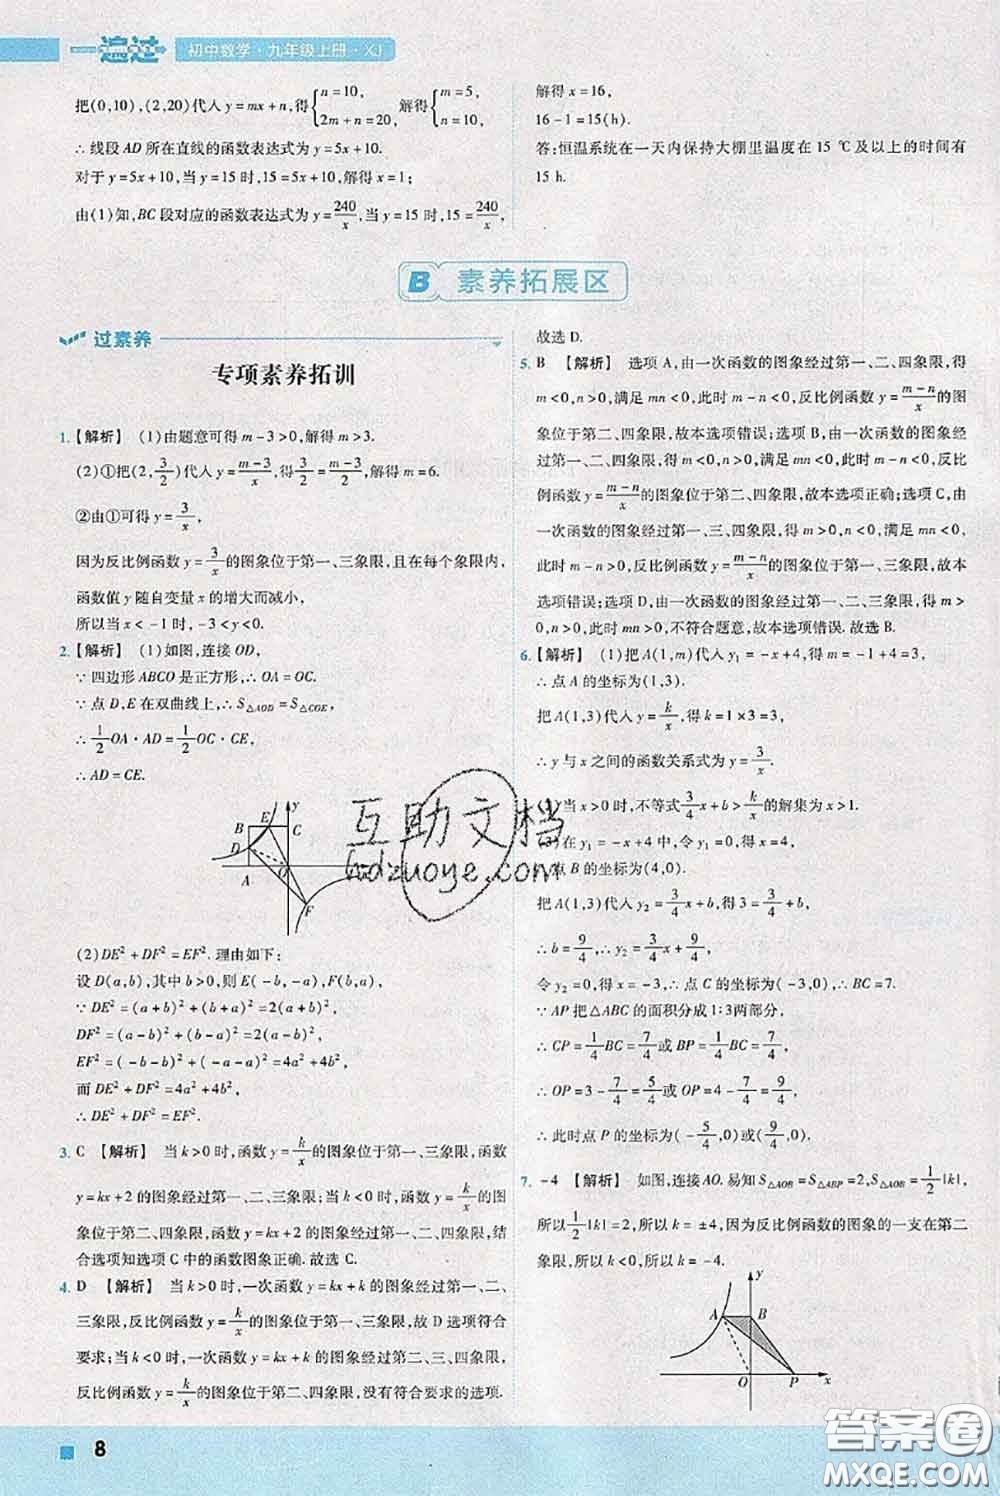 一遍过 初中数学·九年级上册·XJ
把(0,10),(2,20)代入y=mx+n,得{n=10, 2m+n=20, 解得{m=5, n=10,
∴线段AD所在直线的函数表达式为y=5x+10.
对于y=5x+10,当y=15时,15=5x+10,解得x=1;
由(1)知,BC段对应的函数表达式为y=240/x,当y=15时,15=240/x,
解得x=16,
16-1=15(h).
答:恒温系统在一天内保持大棚里温度在15 ℃及以上的时间有
15 h.
B 素养拓展区
过素养
专项素养拓训
1.【解析】 (1)由题意可得m-3>0,解得m>3.
(2)①把(2,3/2)代入y=(m-3)/x,得3/2=(m-3)/2,解得m=6.
②由①可得y=3/x,
因为反比例函数y=3/x的图象位于第一、三象限,且在每个象限内,
函数值y随自变量x的增大而减小,
所以当x<-1时,-3<y<0.
2.【解析】 (1)如图,连接OD,
∵四边形ABCO是正方形,∴OA=OC.
∵点D,E在双曲线上,∴S△AOD=S△COE,
∴1/2OA·AD=1/2OC·CE,
∴AD=CE.
y
B E C
D
A O
F
(2)DE²+DF²=EF².理由如下:
设D(a,b),其中b>0,则E(-b,-a),F(b,a)
∵DE²=(a+b)²+(b+a)²=2(a+b)²,
DF²=(a-b)²+(b-a)²=2(a-b)²,
EF²=(-b-b)²+(-a-a)²=4a²+4b²,
而DE²+DF²=4a²+4b²,
∴DE²+DF²=EF².
3. C 【解析】 当k>0时,函数y=k/x的图象位于第一、三象限,函数
y=kx+2的图象经过第一、二、三象限;当k<0时,函数y=k/x的图
象位于第二、四象限,函数y=kx+2的图象经过第一、二、四象限,
结合选项知选项C中的函数图象正确.故选C.
4. D 【解析】 当k>0时,一次函数y=kx+k的图象经过第一、二、
三象限,反比例函数y=k/x的图象位于第一、三象限,故D选项符合
要求;当k<0时,一次函数y=kx+k的图象经过第二、三、四象限,
反比例函数y=k/x的图象位于第二、四象限,没有符合要求的选项.
故选D.
5. B 【解析】 选项A,由一次函数的图象经过第一、二、四象限,得
m<0,n>0,满足mn<0,此时m-n<0,反比例函数y=(m-n)/x的图
象位于第二、四象限,故本选项错误;选项B,由一次函数的图象经
过第一、二、四象限,得m<0,n>0,满足mn<0,此时m-n<0,反比
例函数y=(m-n)/x的图象位于第二、四象限,故本选项正确;选项C,由
一次函数的图象经过第一、三、四象限,得m>0,n<0,满足mn<0,
此时m-n>0,反比例函数y=(m-n)/x的图象位于第一、三象限,故本
选项错误;选项D,由一次函数的图象经过第一、二、三象限,得m>
0,n>0,此时mn>0,不符合题意,故本选项错误.故选B.
6.【解析】 (1)把A(1,m)代入y₁=-x+4,得m=-1+4=3,
∴点A的坐标为(1,3).
把A(1,3)代入y=k/x,得k=1×3=3,
∴y与x之间的函数关系式为y=3/x.
当x>0时,不等式3/4x+b>k/x的解集为x>1.
(3)在y₁=-x+4中,令y₁=0,得x=4,
∴点B的坐标为(4,0).
把A(1,3)代入y₂=3/4x+b,得3=3/4+b,
∴b=9/4,∴y₂=3/4x+9/4,
令y₂=0,得x=-3,∴点C的坐标为(-3,0),∴BC=7.
∵AP把△ABC的面积分成1:3两部分,
∴CP=1/4BC=7/4或BP=1/4BC=7/4,
∴OP=3-7/4=5/4或OP=4-7/4=9/4,
∴此时点P的坐标为(-5/4,0)或(9/4,0).
7. -4 【解析】 如图,连接AO.易知S△AOB=S△ABP=2,S△AOB=1/2|k|,
所以1/2|k|=2,所以k=±4,因为反比例函数的图象的一支在第二
象限,所以k<0,所以k=-4.
y
A B
O P x
8
互助文档
hdzuoye.com
答案圈
MXQE.COM